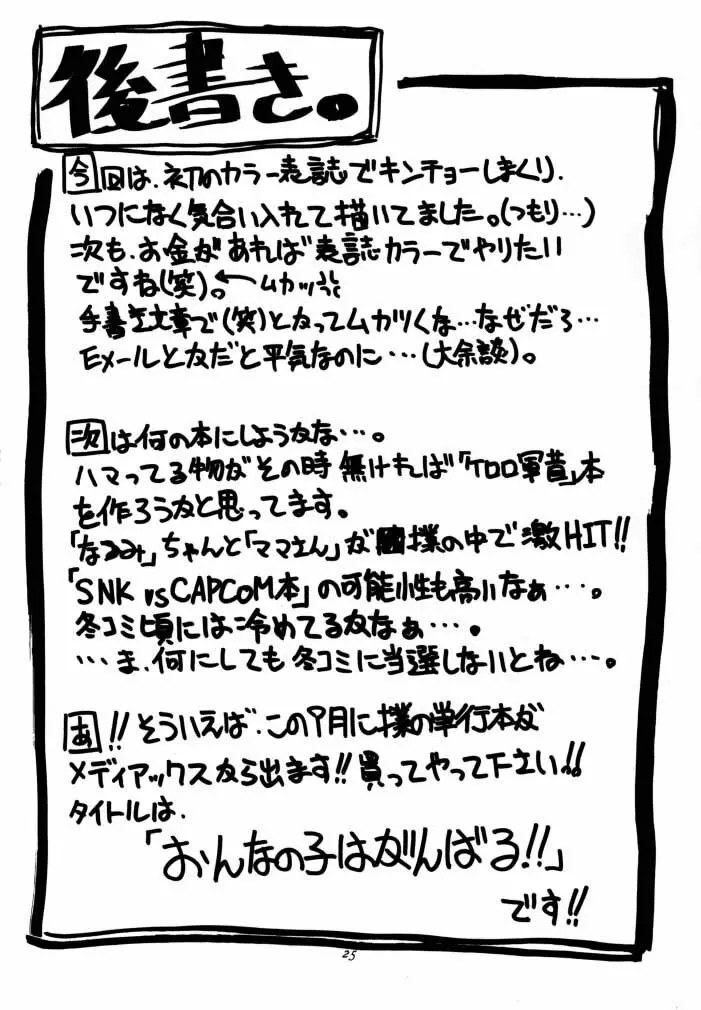 後書き。
今回は、初のカラー表誌でキンチョーしまくり、
いつになく気合い入れて描いてました。(つもり…)
次も、お金があれば表誌カラーでやりたい
ですね(笑)。←ムカッ
手書き文章で(笑)とかってムカツくな…なぜだろ…
Eメールとかだと平気なのに…(大余談)。
次は何の本にしようかな…。
ハマってる物がその時無ければ「ケロロ軍曹」本
を作ろうかと思ってます。
「なるみ」ちゃんと「ママさん」が僕の中で激HIT!!
「SNK vs CAPCOM本」の可能性も高いなぁ…。
冬コミ頃には冷めてるかなぁ…。
…ま、何にしても冬コミに当選しないとね…。
あ!!そういえば、この9月に僕の単行本が
メディアックスから出ます!!買ってやって下さい!!
タイトルは、
「おんなの子はがんばる!!」
です!!
25